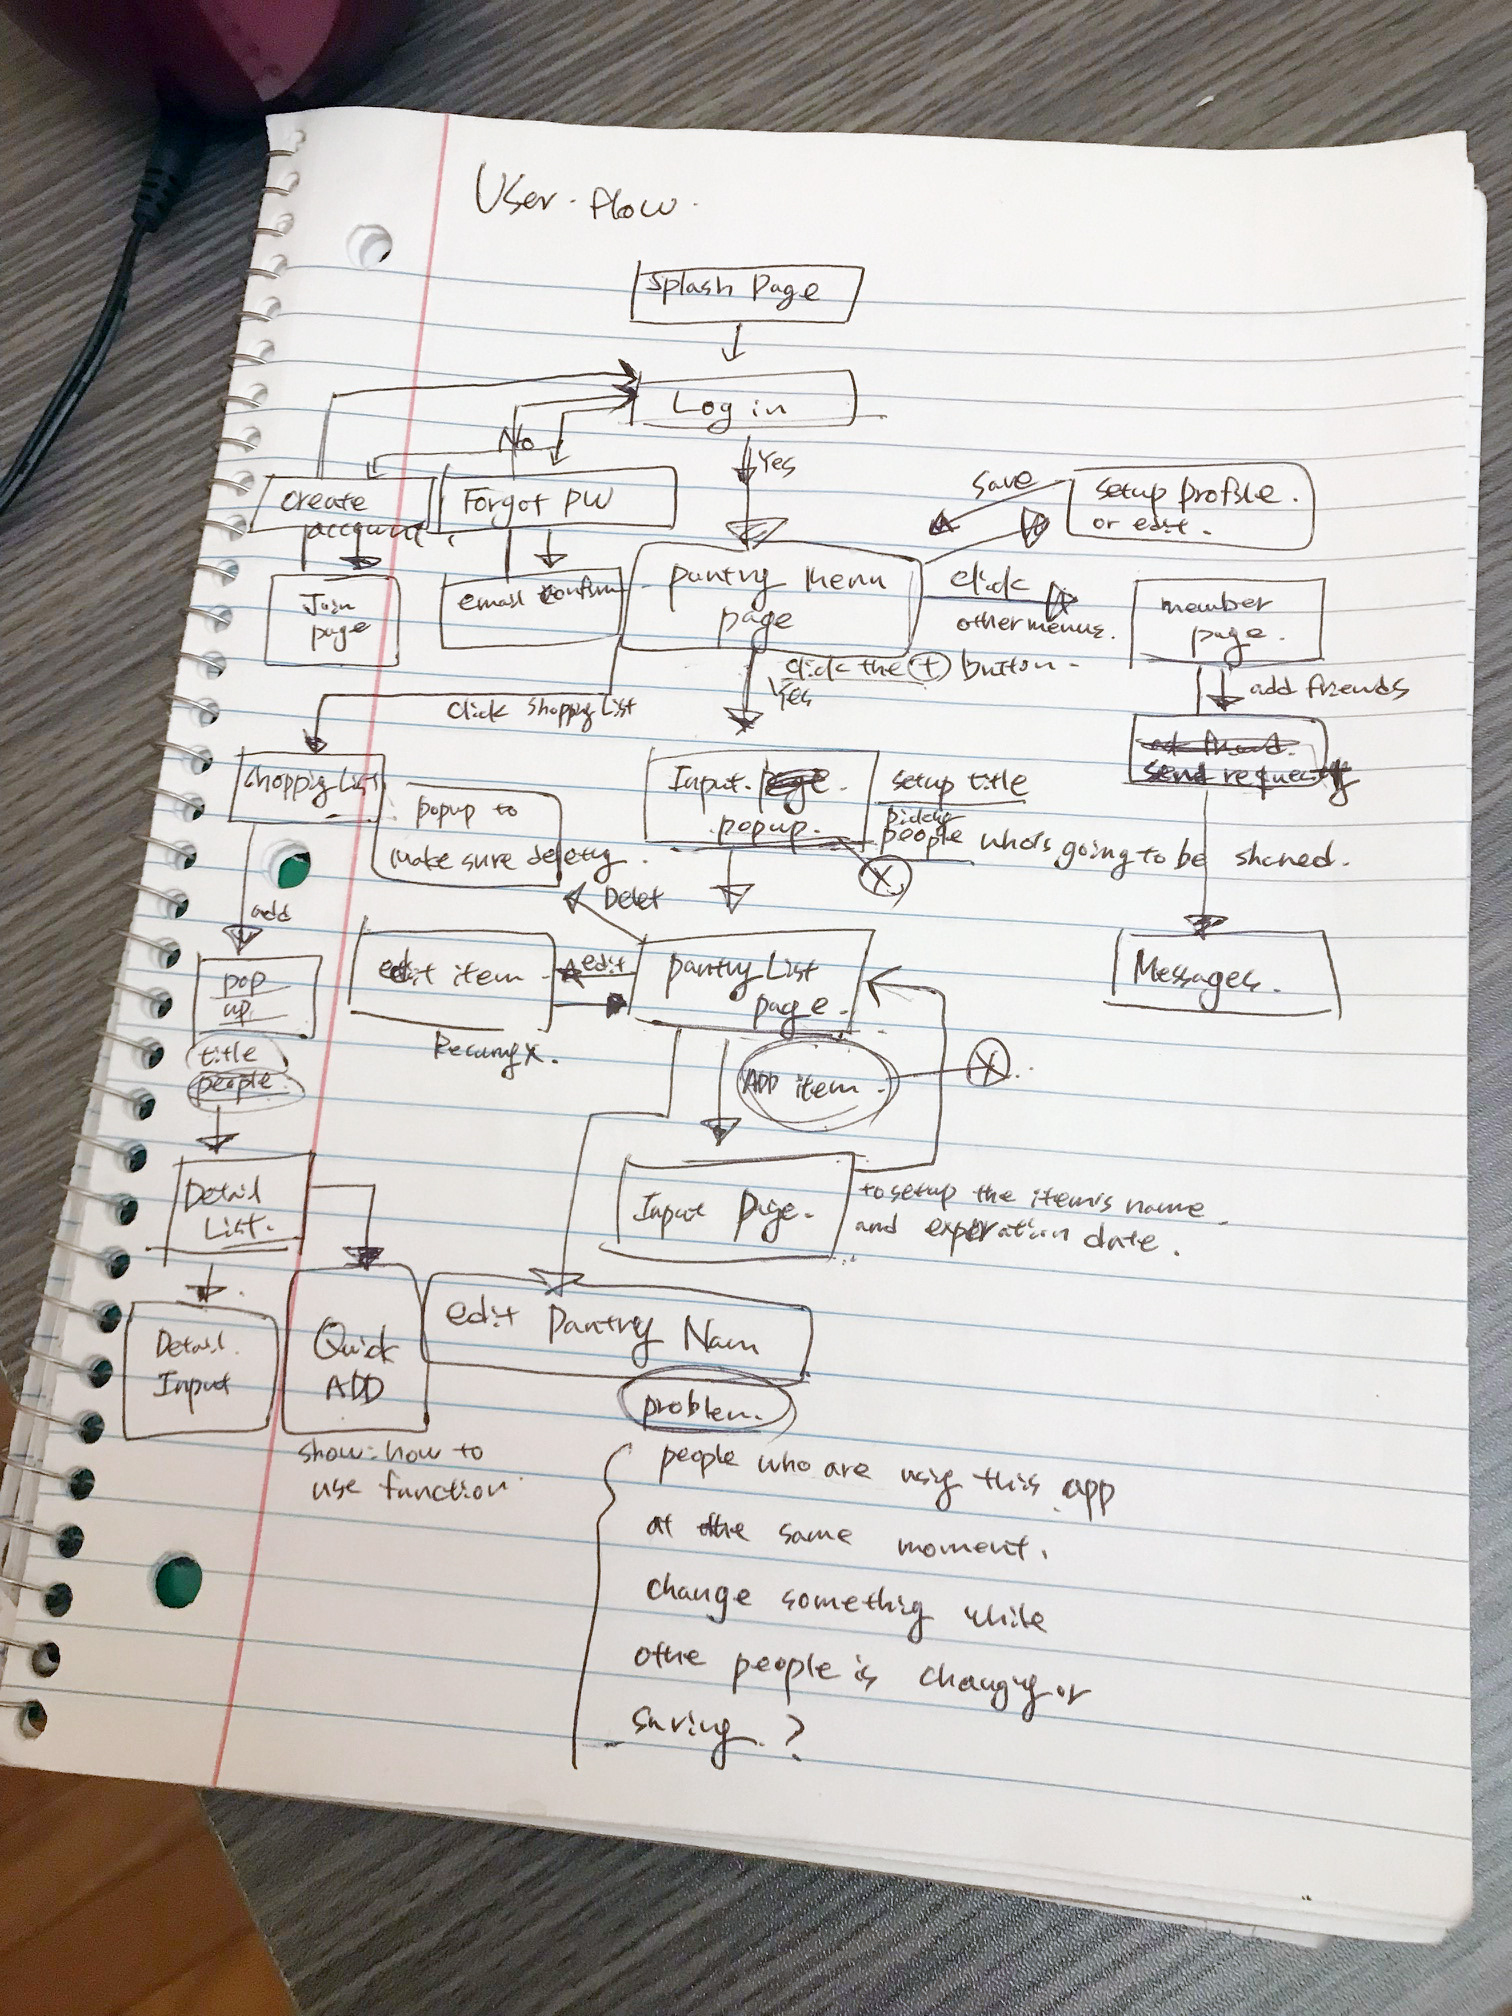 User. flow.
Splash Page
Log in
No
Yes
save
setup profile.
or edit.
create
account.
Forgot PW
Join
page
email confirm
pantry menu
page
click
other menus.
member
page.
click the + button.
Yes
add friends
click Shoppig List
send request
Shoppig List
popup to
make sure deleting.
Input.
popup.
setup title
people who's going to be shared.
X
add
Delet
pop
up.
title
people.
edit item
edit
pantry List
page.
Messages.
ADD item.
X
Detail
List.
Input Page.
to setup the item's name
and experation date.
Detail.
Input
Quick
ADD
edit Pantry Nam
show: how to
use function.
problem.
people who are usig this app
at the same moment.
change somethig while
othe people is changig or
saving.?